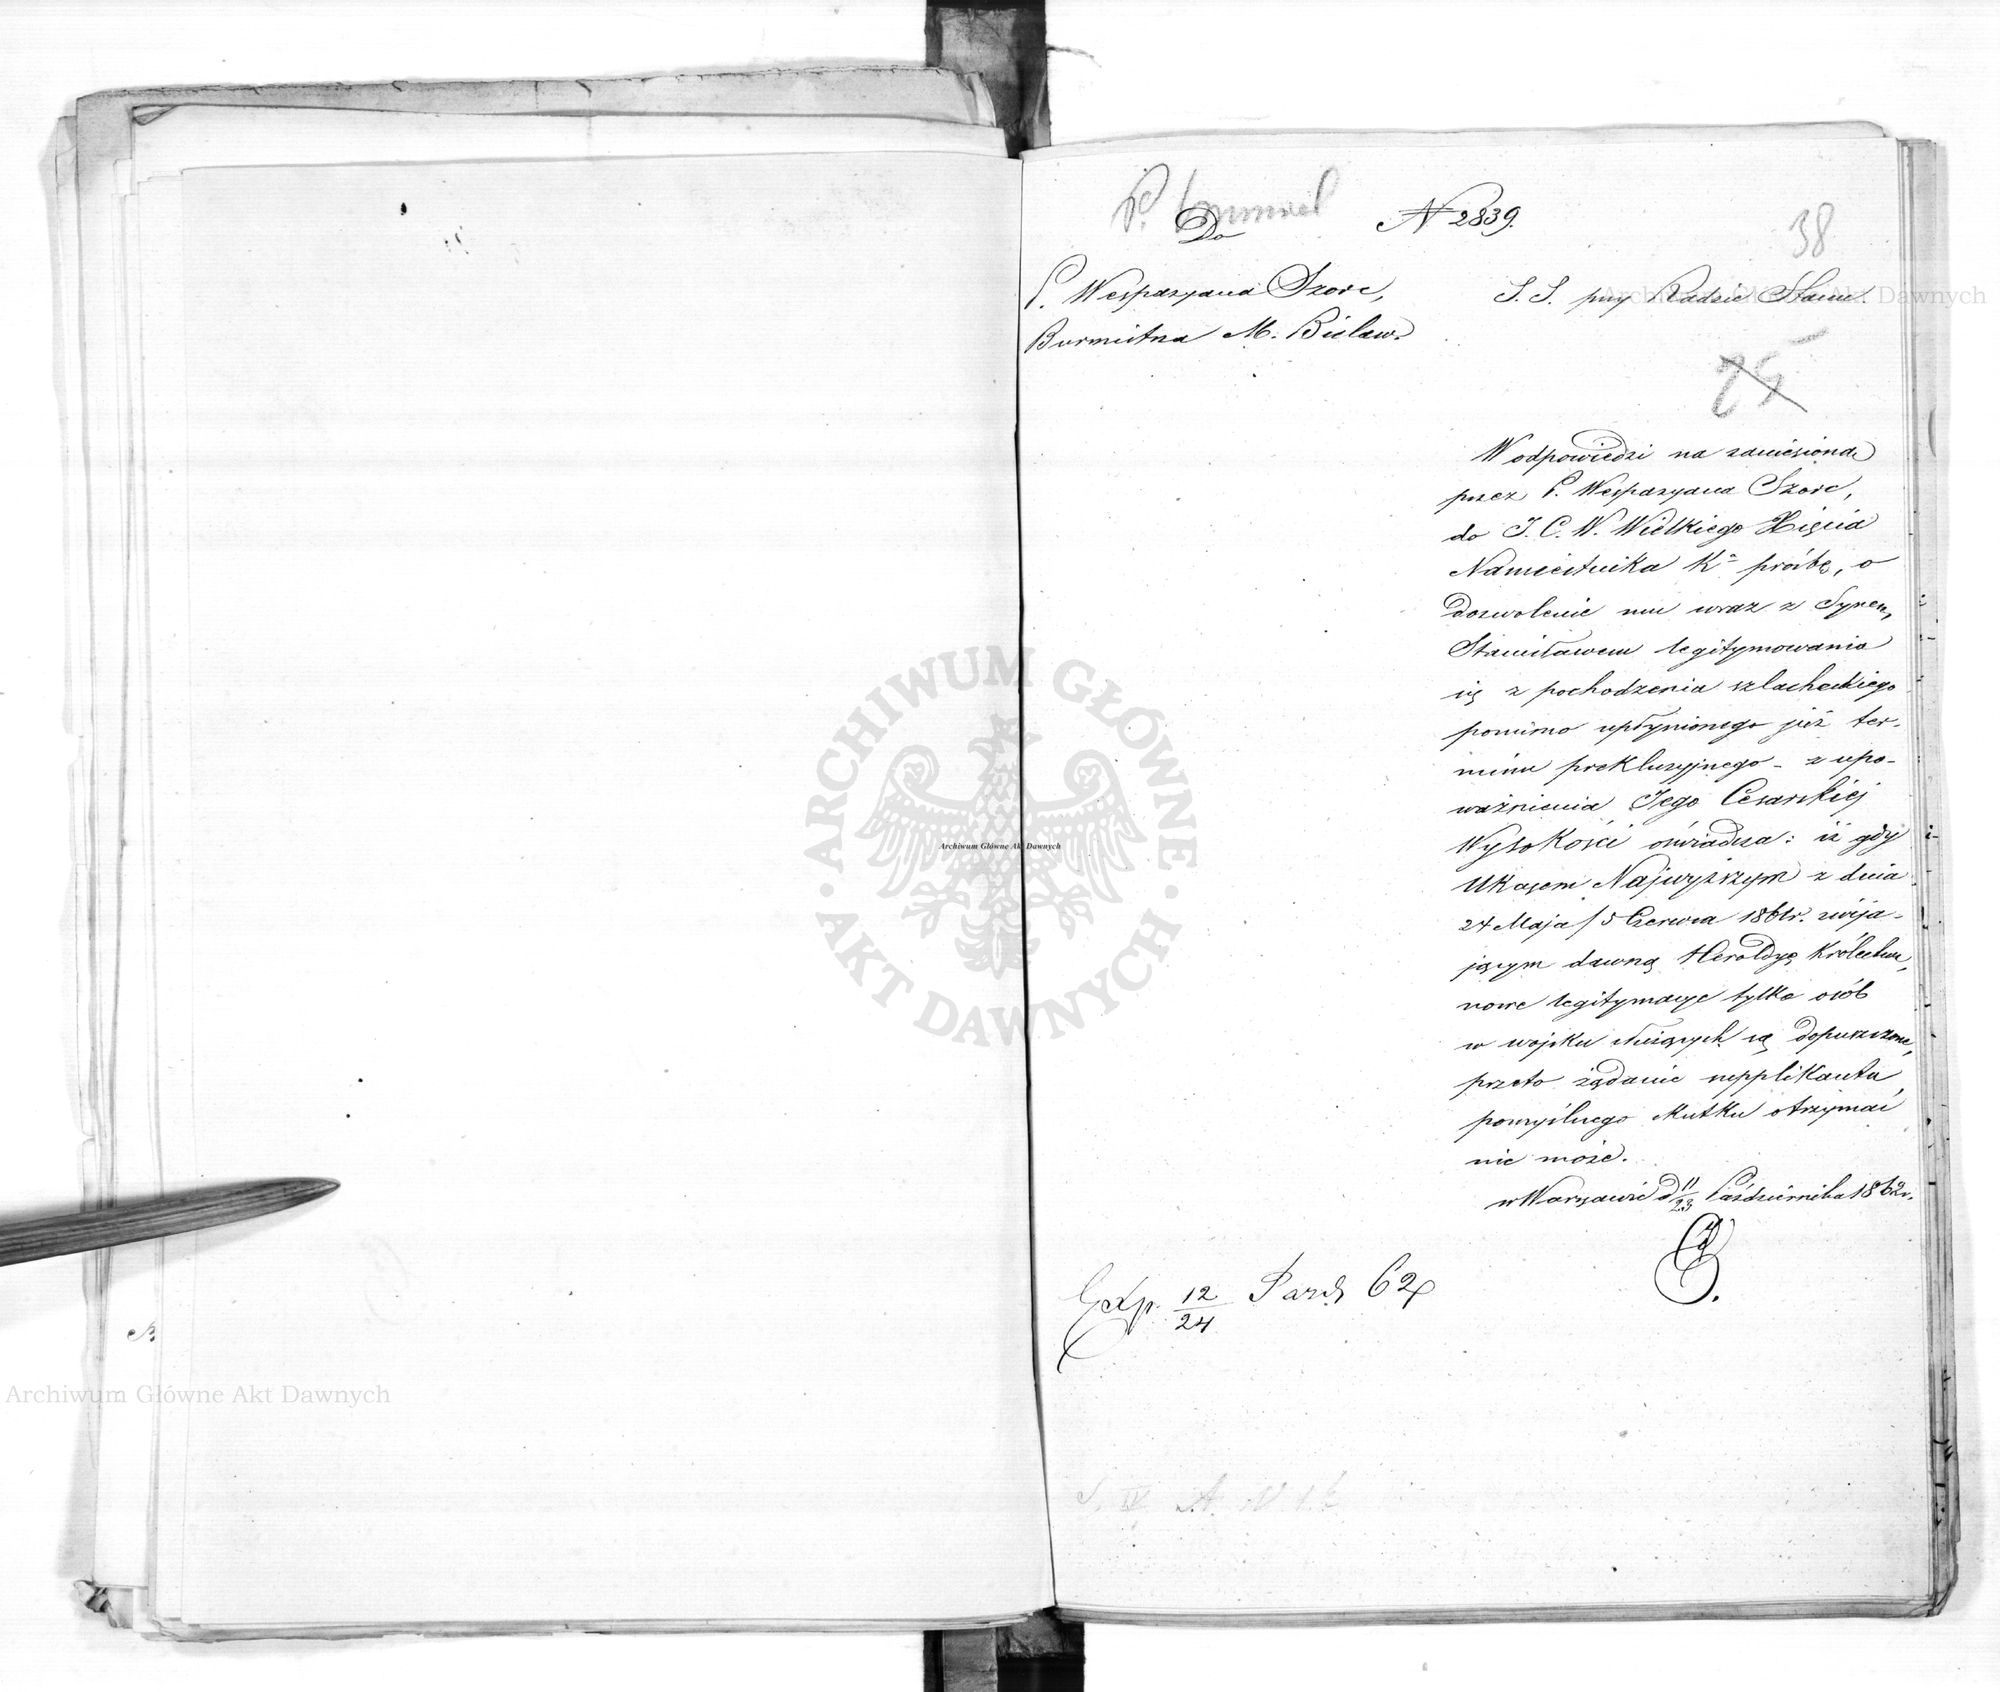 Do
N 2839.
38
P. Wespazyana Szorc,
Burmistrza M. Bielaw.
S. S. przy Radzie Stanu.
25
W odpowiedzi na zaniesioną
przez P. Wespazyana Szorc,
do J. C. W. Wielkiego Xięcia
Namiestnika Kª prośbę, o
dozwolenie mu wraz z Synem,
Stanisławem legitymowania
się z pochodzenia szlacheckiego
pomimo upłynionego już ter-
minu prekluzyjnego - z upo-
ważnienia Jego Cesarskiej
Wysokości oświadcza: iż gdy
Ukazem Najwyższym z dnia
24 Maja / 5 Czerwca 1861 r. zwija-
jącym dawną Heroldyę Królestwa,
nowe legitymacye tylko osób
w wojsku służących są dopuszczone,
przeto żądanie supplikanta,
pomyślnego skutku otrzymać
nie może.
w Warszawie d 11/23 Października 1862 r.
Exp. 12/24 Paźd. 62
Archiwum Główne Akt Dawnych
ARCHIWUM GŁÓWNE
AKT DAWNYCH
Archiwum Główne Akt Dawnych
Archiwum Główne Akt Dawnych